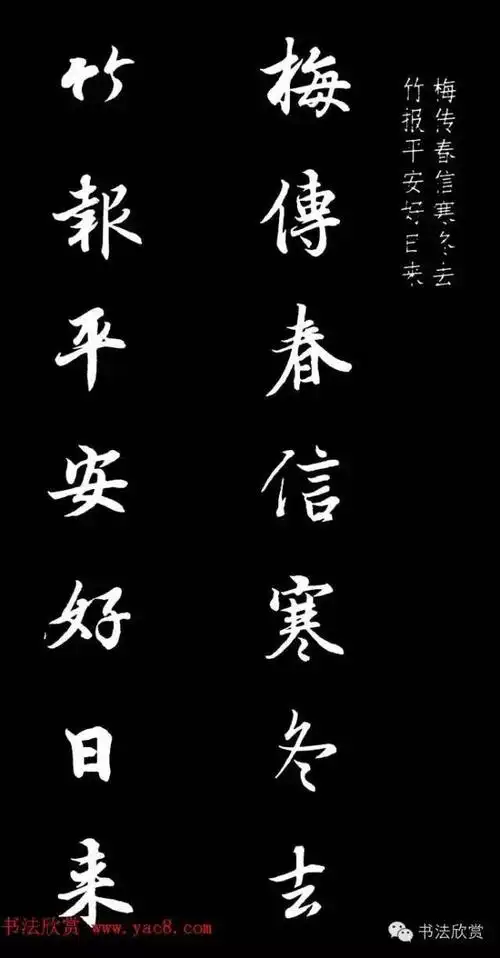 梅传春信寒冬去
竹报平安好日来
梅傳春信寒冬去
竹報平安好日来
书法欣赏 www.yac8.com
书法欣赏